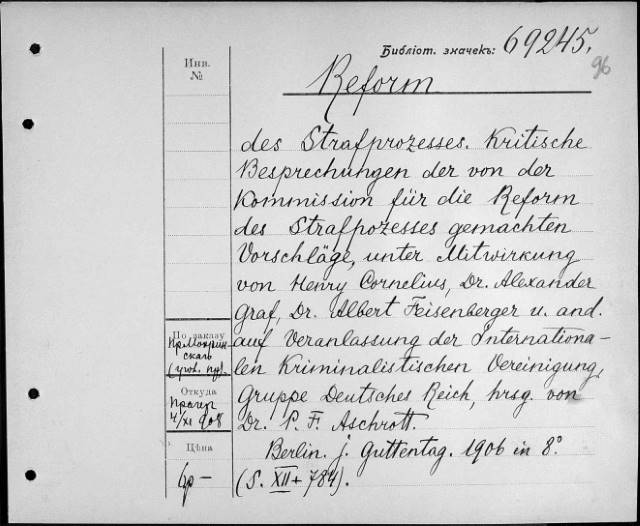 Библіот. значекъ: 69245.
96
Инв.
№
Reform
des Strafprozesses. Kritische
Besprechungen der von der
Kommission für die Reform
des Strafpozesses gemachten
Vorschläge, unter Mitwirkung
von Henry Cornelius, Dr. Alexander
Graf, Dr. Albert Feisenberger u. and.
auf Veranlassung der Internationa-
len Kriminalistischen Vereinigung,
Gruppe Deutsches Reich, hrsg. von
Dr. P. F. Aschrott.
Berlin. J. Guttentag. 1906 in 8°
(S. XII + 784).
По заказу
Откуда
4/XI 908
Цѣна